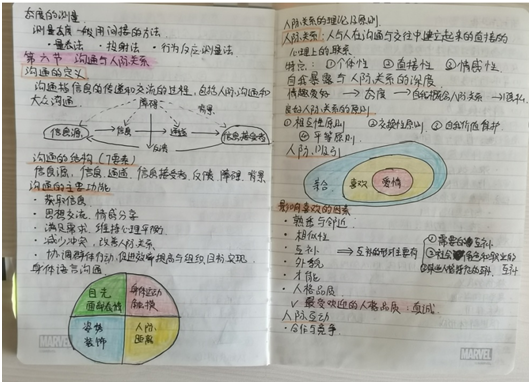 态度的测量
测量态度一般用间接的方法
·量表法 ·投射法 ·行为反应测量法
第六节 沟通与人际关系
沟通的定义
沟通指信息的传递和交流的过程,包括人际沟通和
大众沟通
障碍
背景
信息源 → 信息 → 通道 → 信息接受者
反馈
沟通的结构(7要素)
信息源,信息,通道,信息接受者,反馈,障碍,背景
沟通的主要功能
·获取信息
·思想交流,情感分享
·满足需求,维持心理平衡
·减少冲突,改善人际关系
·协调群体行动,促进效率提高与组织目标实现
身体语言沟通
目光
面部表情
身体运动
触摸
姿势
装饰
人际
距离
MARVEL
人际关系的理论及原则
人际关系:人与人在沟通与交往中建立起来的直接的
心理上的联系
特点:①个体性 ②直接性 ③情感性
自我暴露与人际关系的深度
情趣爱好 → 态度 → 自我概念人际关系 → 隐私
良好人际关系的原则
①相互性原则 ②交换性原则 ③自我价值维护
④平等原则
人际吸引
亲合
喜欢
爱情
影响喜欢的因素
·熟悉与邻近
·相似性
·互补 ⇒ 互补的形式主要有
①需要的互补
·外貌
·才能
·人格品质
✓ 最受欢迎的人格品质:真诚
人际互动
·合作与竞争
MARVEL